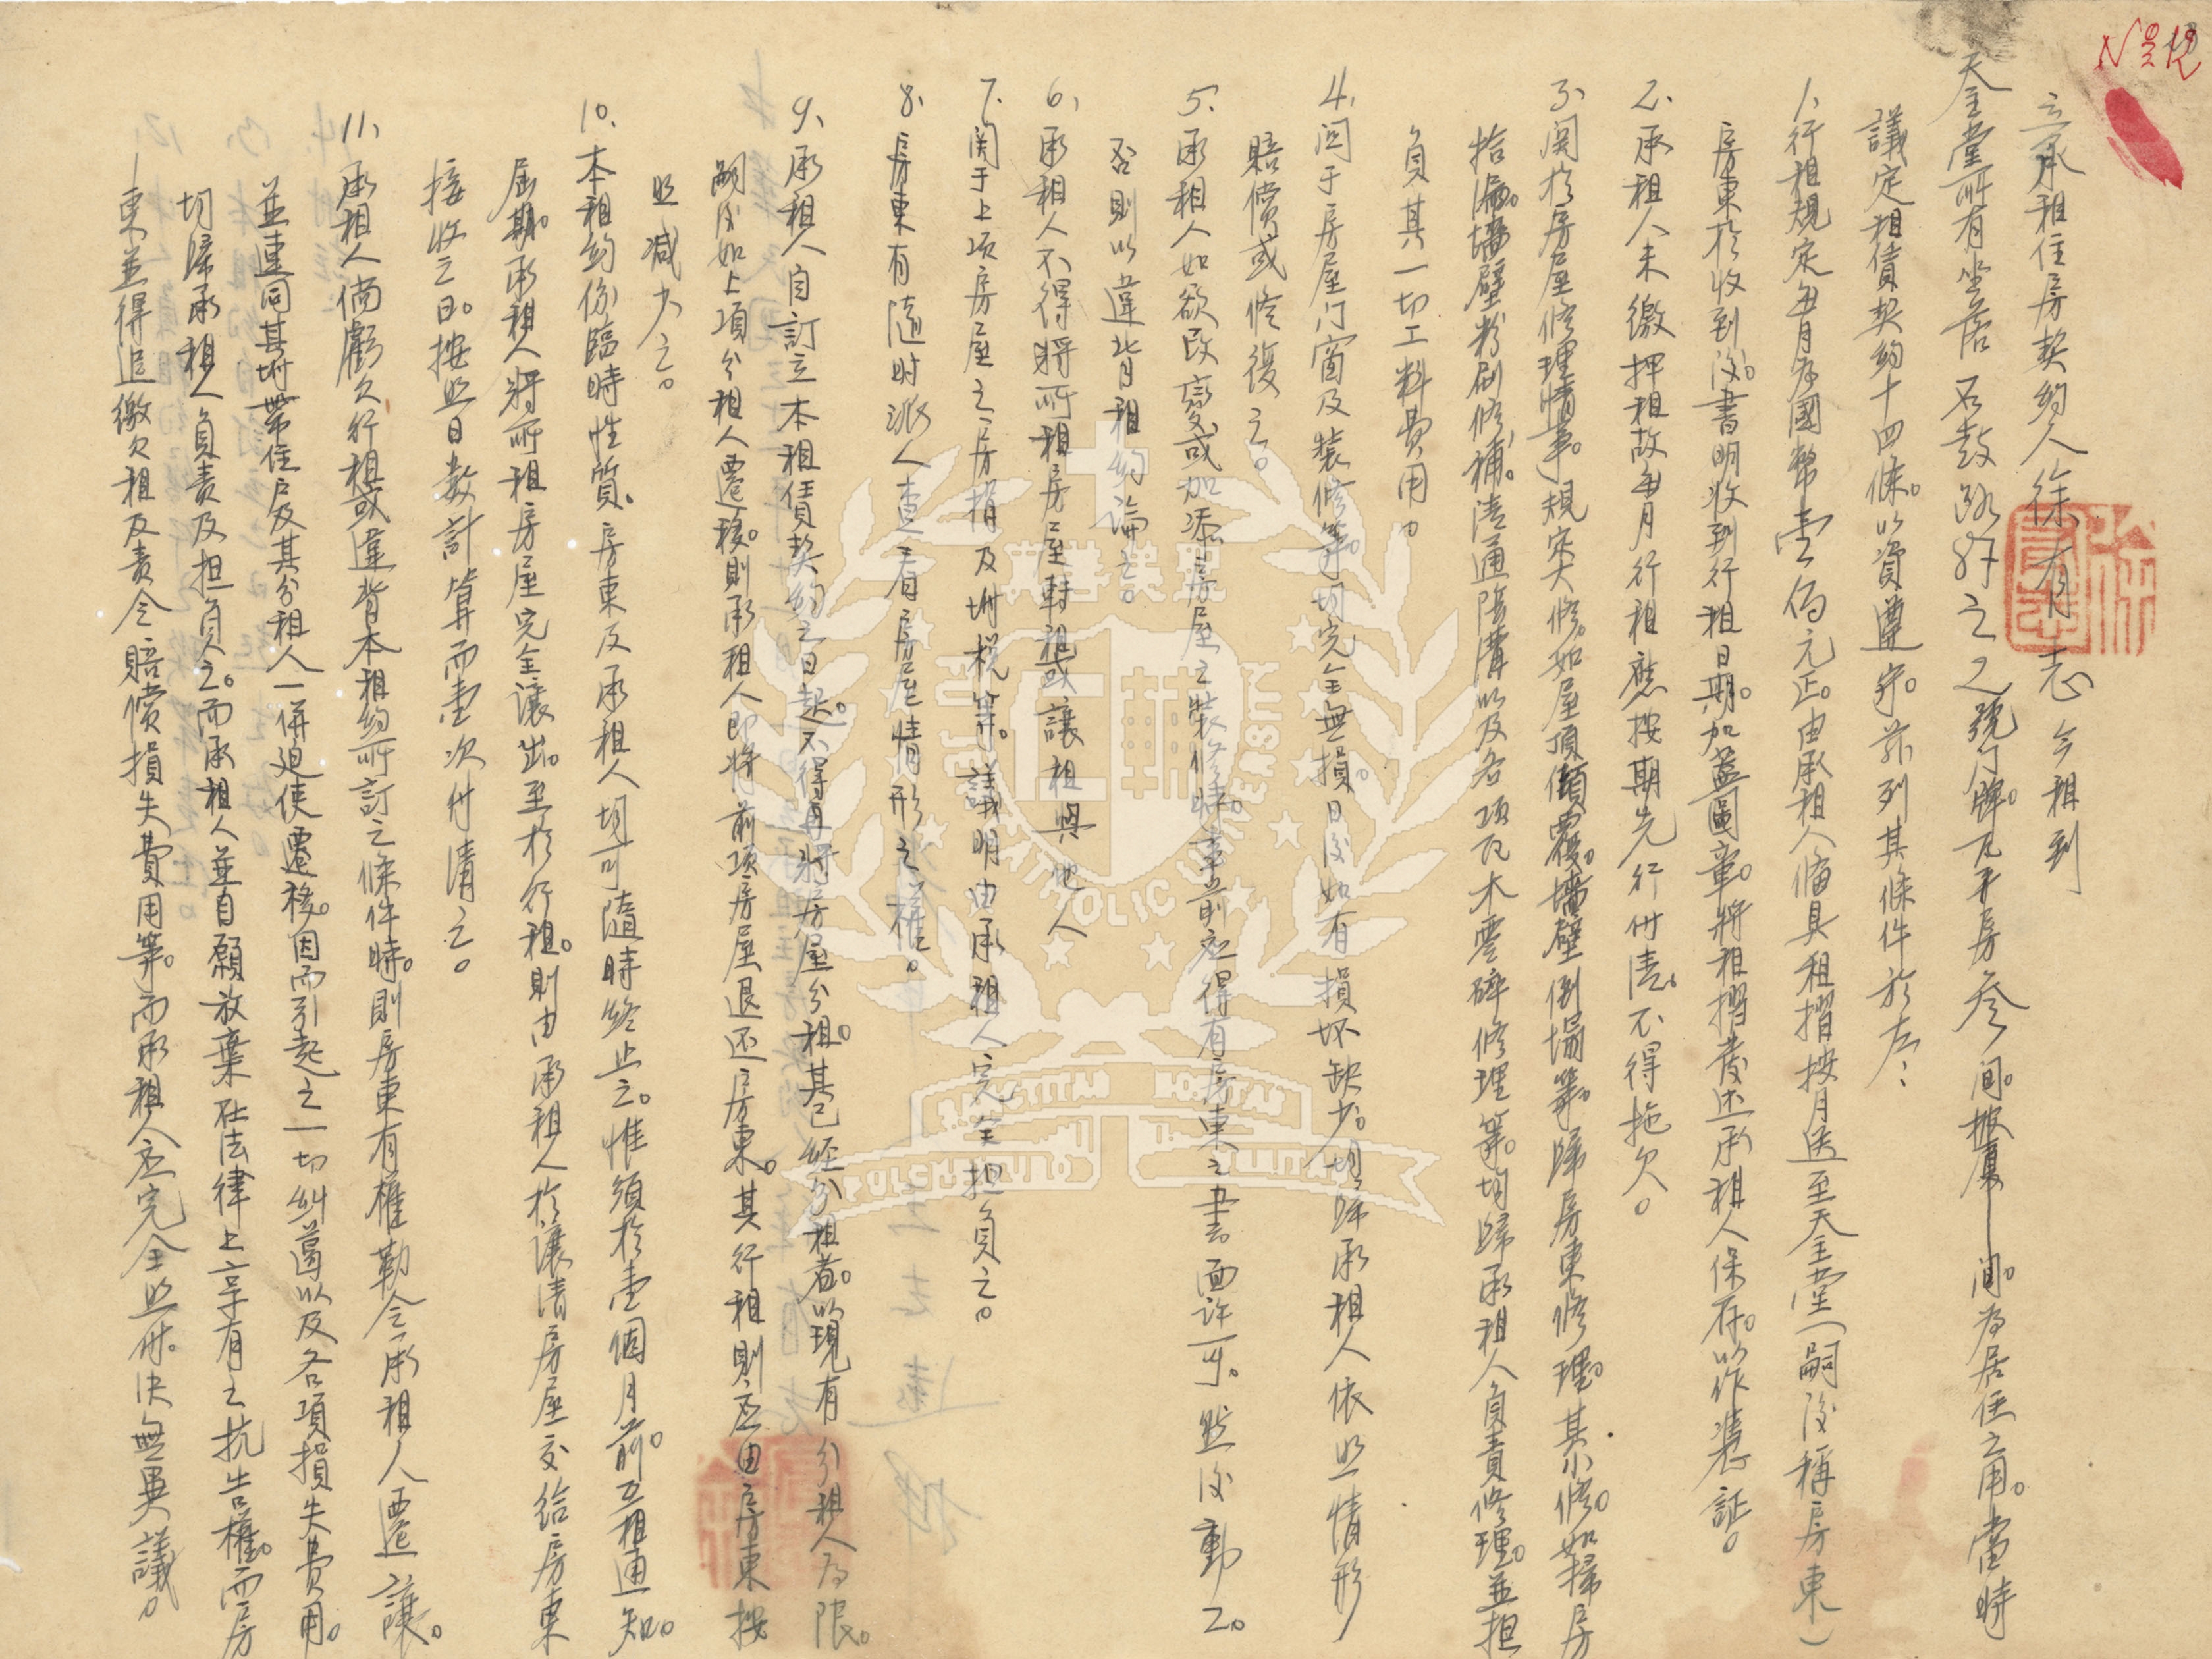 No 12
立承租住房契約人徐有志今租到
天主堂所有坐落石鼓路87之2號門牌瓦平房叁間。披厦一間。為居住之用。當時
議定租賃契約十四條。以資遵守。茲列其條件於左：
1、行租規定每月為國幣壹佰元正。由承租人備具租摺按月送至天主堂（嗣後稱房東）
房東於收到後。書明收到行租日期。加蓋圖章。將租摺發还承租人保存。以作憑証。
2、承租人未繳押租故每月行租應按期先行付清。不得拖欠。
3、関於房屋修理情事。規定大修。如屋頂傾覆。墻壁倒塌等。歸房東修理。其小修。如掃房
拾漏。墻壁粉刷修補。清通陰溝以及各項瓦木零碎修理等。均歸承租人負責修理。並担
負其一切工料費用。
4、関于房屋门窗及裝修等。均完全無損。日後如有損坏缺少。均歸承租人依照情形
賠償或修復之。
5、承租人如欲改變或加添房屋之裝修時。事前应得有房東之書面許可。然後動工。
否則以違背租約論之。
6、承租人不得將所租房屋轉租或讓租與他人
7、関于上项房屋之房捐及附税等。議明由承租人完全担負之。
8、房東有隨时派人查看房屋情形之權。
9、承租人自訂立本租賃契約之日起。不得再將房屋分租。其已經分租者。以現有分租人為限。
嗣後如上項分租人遷移。則承租人即將前項房屋退还房東。其行租則应由房東按
照减少之。
10、本租約係臨時性質。房東及承租人均可隨時終止之。惟須於壹個月前。互相通知。
屆期。承租人將所租房屋完全讓出。至於行租。則由承租人於讓清房屋交給房東
接收之日。按照日数計算而壹次付清之。
11、承租人倘虧欠行租或違背本租約所訂之條件時。則房東有權勒令承租人遷讓。
並連同其附帶住戶及其分租人一併迫使遷移。因而引起之一切糾葛以及各項損失費用。
均歸承租人負責及担負之。而承租人並自願放棄在法律上享有之抗告權。而房
東並得追繳欠租及責令賠償損失費用等。而承租人应完全照付。决無異議。